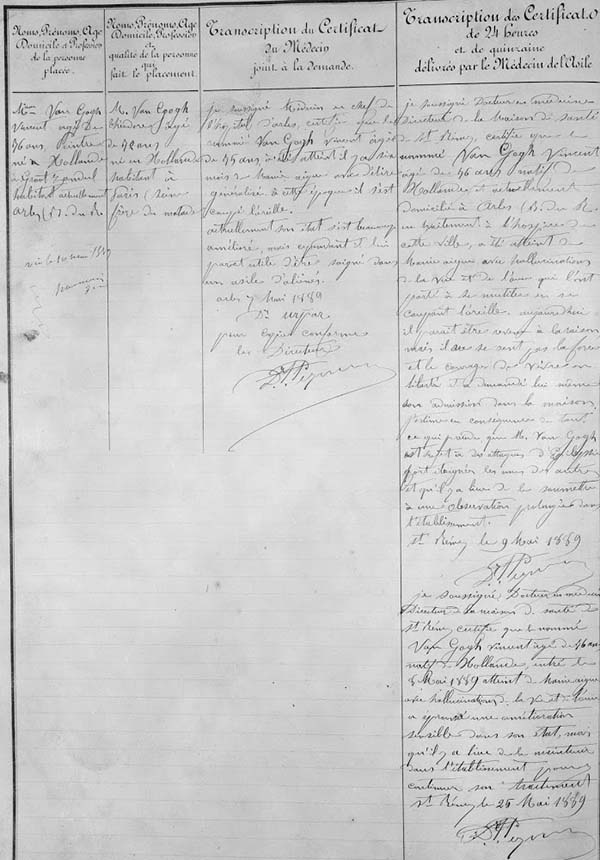 Noms, Prénoms, Age
Domicile et Profession
de la personne
placée.
Mr Van Gogh
Vincent âgé de
36 ans, Peintre
né en Hollande
à Groot Zundert
habitant actuellement
Arles (B. du R.
Noms, Prénoms, Age
Domicile, Profession
et
qualité de la personne
qui
fait le placement.
M. Van Gogh
Théodore âgé
de 32 ans
né en Hollande
habitant à
Paris (Seine
frère du malade
Transcription du Certificat
du Médecin
joint à la demande.
je soussigné Médecin en chef de
l'hôpital d'arles, certifie que le
nommé Van Gogh vincent âgé
de 35 ans a été atteint il y a six
mois de Manie aigue avec délire
généralisé. à cette époque il s'est
coupé l'oreille.
actuellement son état s'est beaucoup
amélioré, mais cependant il lui
parait utile d'être soigné dans
un asile d'aliénés.
arles 7 Mai 1889
Dr urpar
pour Copie conforme
Le Directeur
Dr Peyron
Transcription des Certificats
de 24 heures
et de quinzaine
délivrés par le Médecin de l'Asile
je soussigné Docteur en médecine
Directeur de la Maison de santé
de St Rémy, certifie que le
nommé Van Gogh Vincent
âgé de 36 ans natif de
Hollande et actuellement
domicilié à Arles (B. du R.
en traitement à l'hospice de
cette ville, a été atteint de
Manie aigue avec hallucinations
de la vue et de l'ouïe qui l'ont
porté à se mutiler en se
coupant l'oreille. aujourd'hui
il parait être revenu à la raison
mais il ne se sent pas la force
et le courage de vivre en
liberté et a demandé lui même
son admission dans la maison.
J'estime en conséquence de tout
ce qui précède que M. Van Gogh
est sujet à des attaques d'Epilepsie
fort éloignées les unes des autres
et qu'il y a lieu de le soumettre
à une observation prolongée dans
l'établissement.
St Rémy le 9 Mai 1889
Dr Peyron
je soussigné, Docteur en médecine
Directeur de la maison de santé de
St Rémy certifie que le nommé
Van Gogh vincent âgé de 36 ans
natif de Hollande, entré le
8 Mai 1889 atteint de Manie aigue
avec hallucinations de la vue et de l'ouïe
a éprouvé une amélioration
sensible dans son état, mais
qu'il y a lieu de le maintenir
dans l'établissement pour y
continuer son traitement
St Rémy le 25 Mai 1889
Dr Peyron